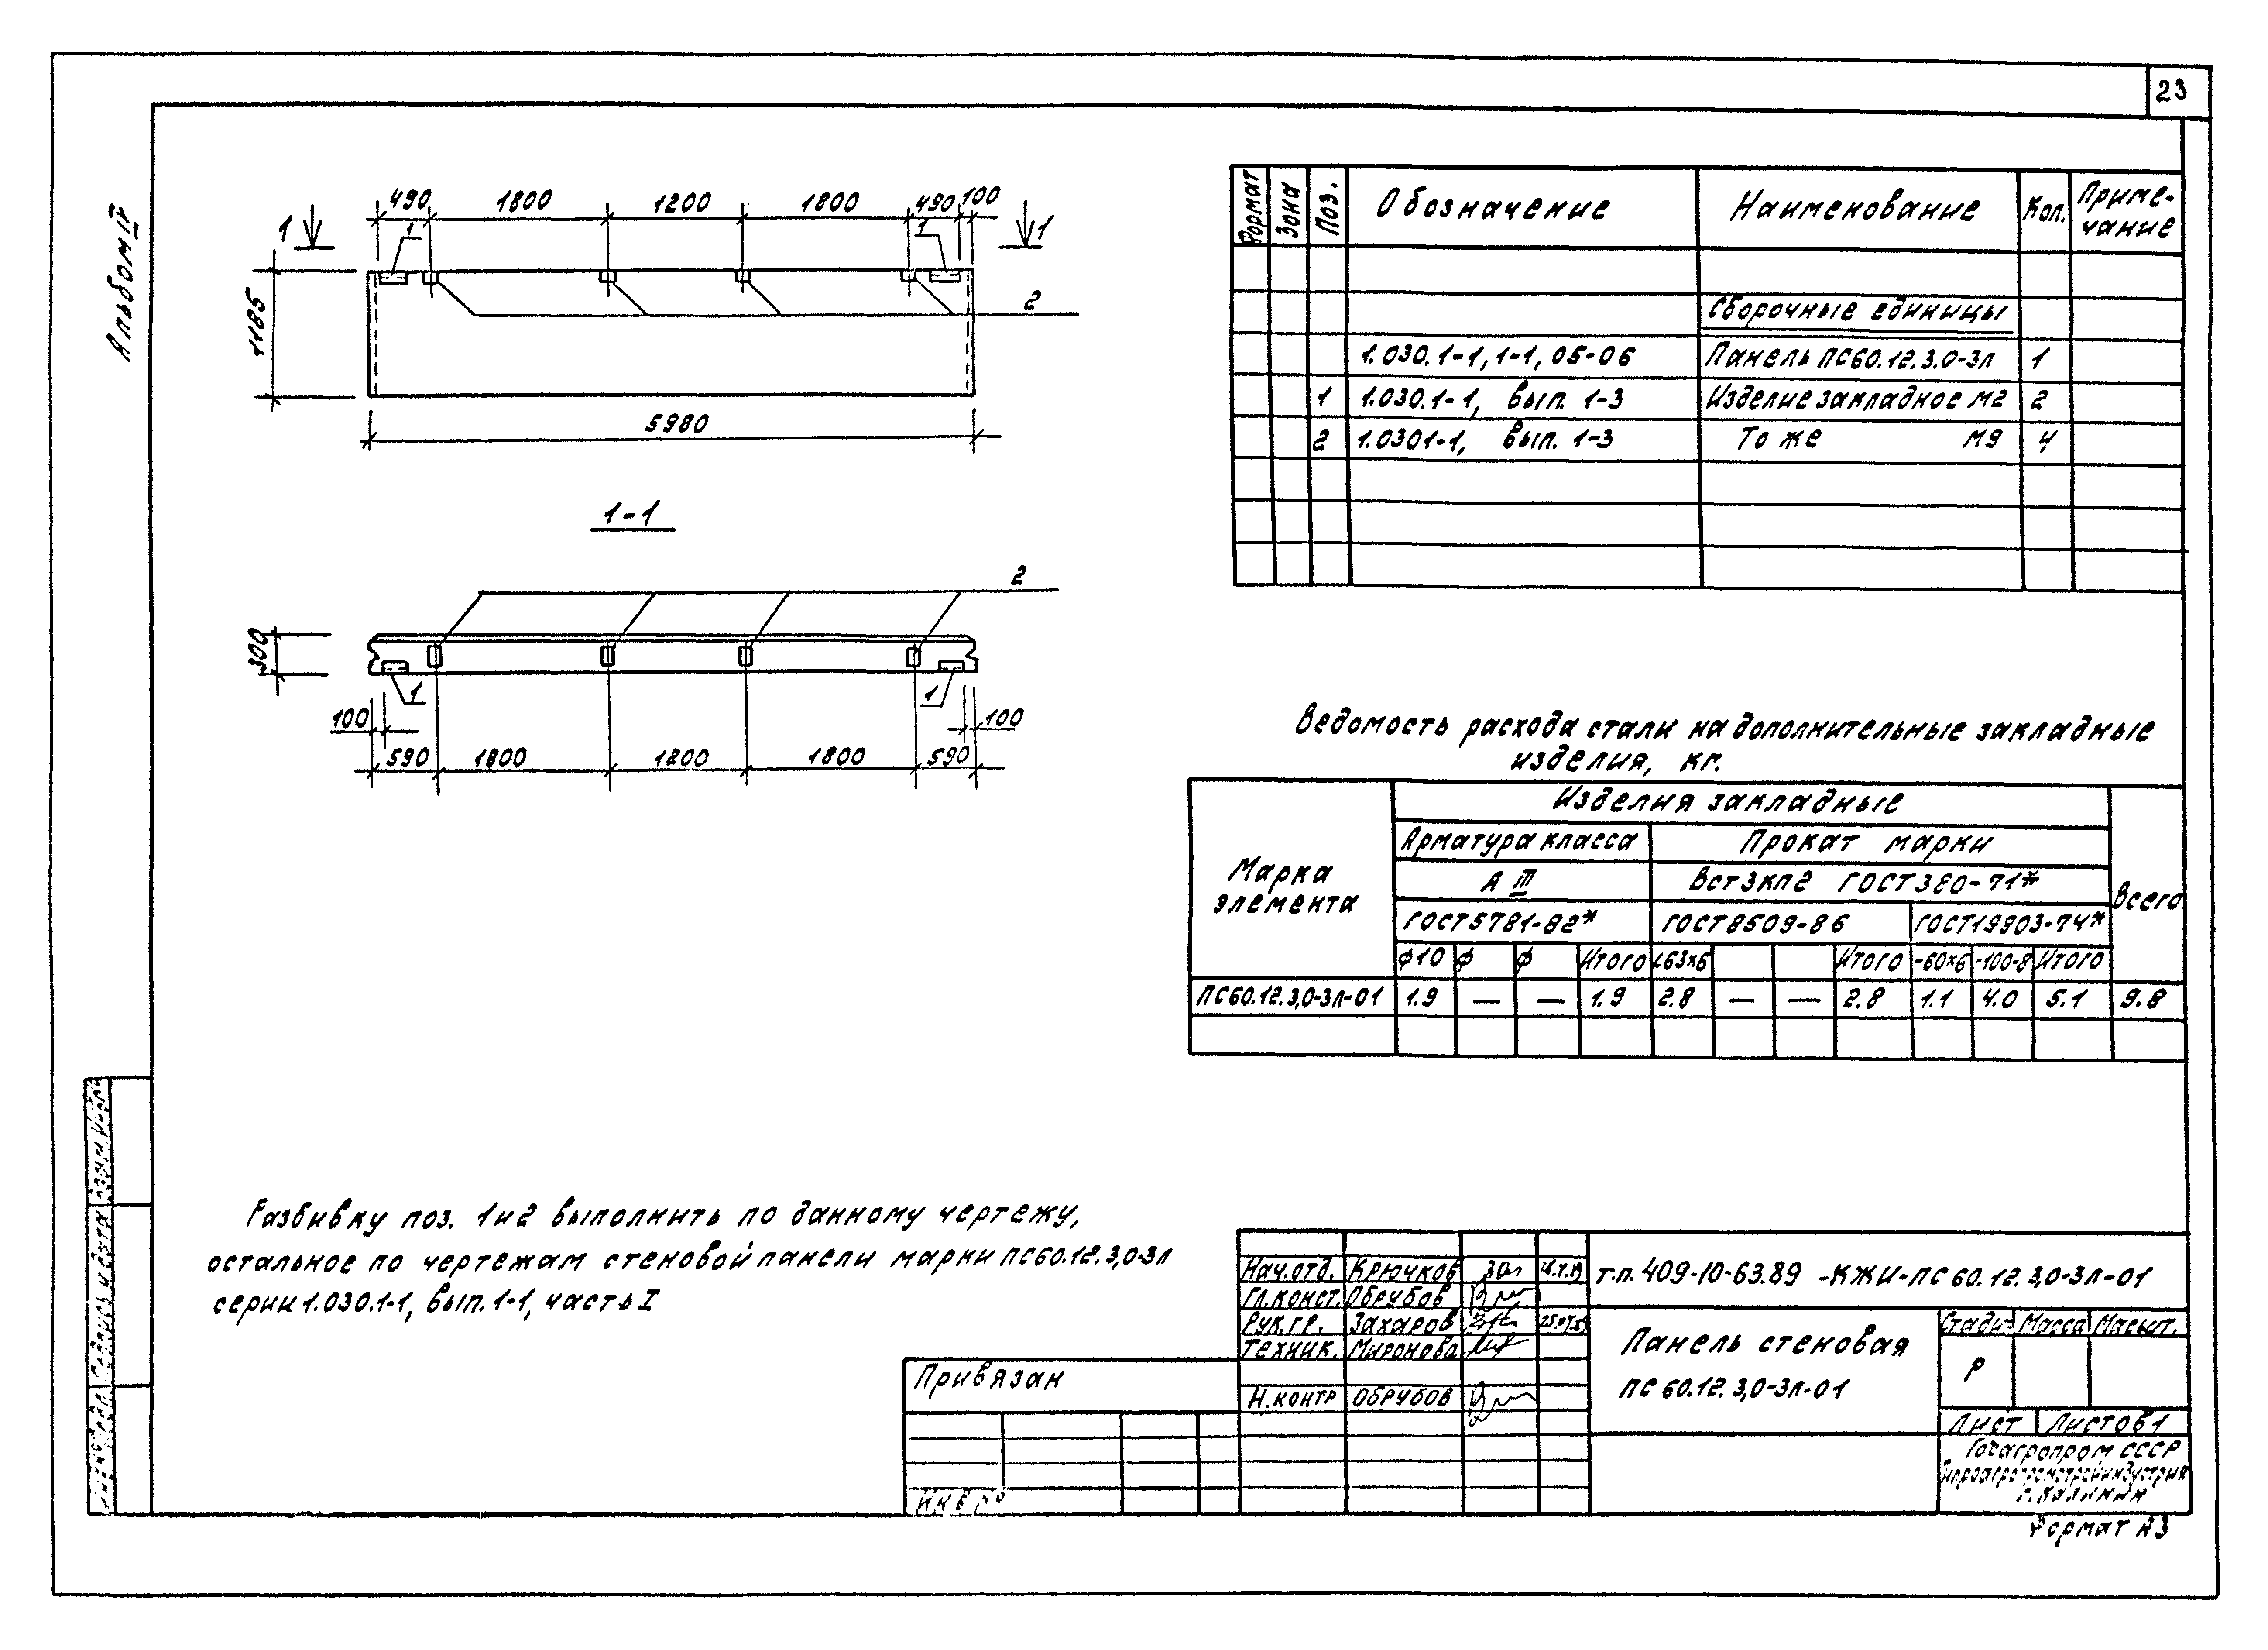 23
Альбом IV
490 1800 1200 1800 490 100
1 1
1 1
2
1185
5980
1-1
2
300
1 1
100 100
590 1800 1200 1800 590
Формат Зона Поз. Обозначение Наименование Кол. Приме-
чание
Сборочные единицы
1.030.1-1, 1-1, 05-06 Панель ПС60.12.3.0-3л 1
1 1.030.1-1, вып. 1-3 Изделие закладное М2 2
2 1.0301-1, вып. 1-3 То же М9 4
Ведомость расхода стали на дополнительные закладные
изделия, кг.
Марка
элемента
Изделия закладные
Всего
Арматура класса Прокат марки
А III Вст3кп2 ГОСТ380-71*
ГОСТ5781-82* ГОСТ8509-86 ГОСТ19903-74*
ф10 ф ф Итого L63х6 Итого -60х6 -100-8 Итого
ПС60.12.3,0-3л-01 1.9 — — 1.9 2.8 — — 2.8 1.1 4.0 5.1 9.8
Разбивку поз. 1 и 2 выполнить по данному чертежу,
остальное по чертежам стеновой панели марки ПС60.12.3,0-3л
серии 1.030.1-1, вып. 1-1, часть I
Привязан
Инв №
Нач.отд. Крючков
Гл.конст. Обрубов
Рук.гр. Захаров
Техник. Миронова
Н.контр Обрубов
т.п. 409-10-63.89 -КЖИ-ПС60.12.3,0-3л-01
Панель стеновая
ПС 60.12.3,0-3л-01
Стадия Масса Масшт.
Р
Лист Листов 1
Госагропром СССР
Гипроагропромстройиндустрия
г. Калинин
Формат А3